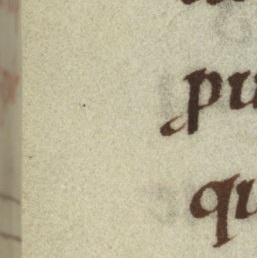 pu
qu